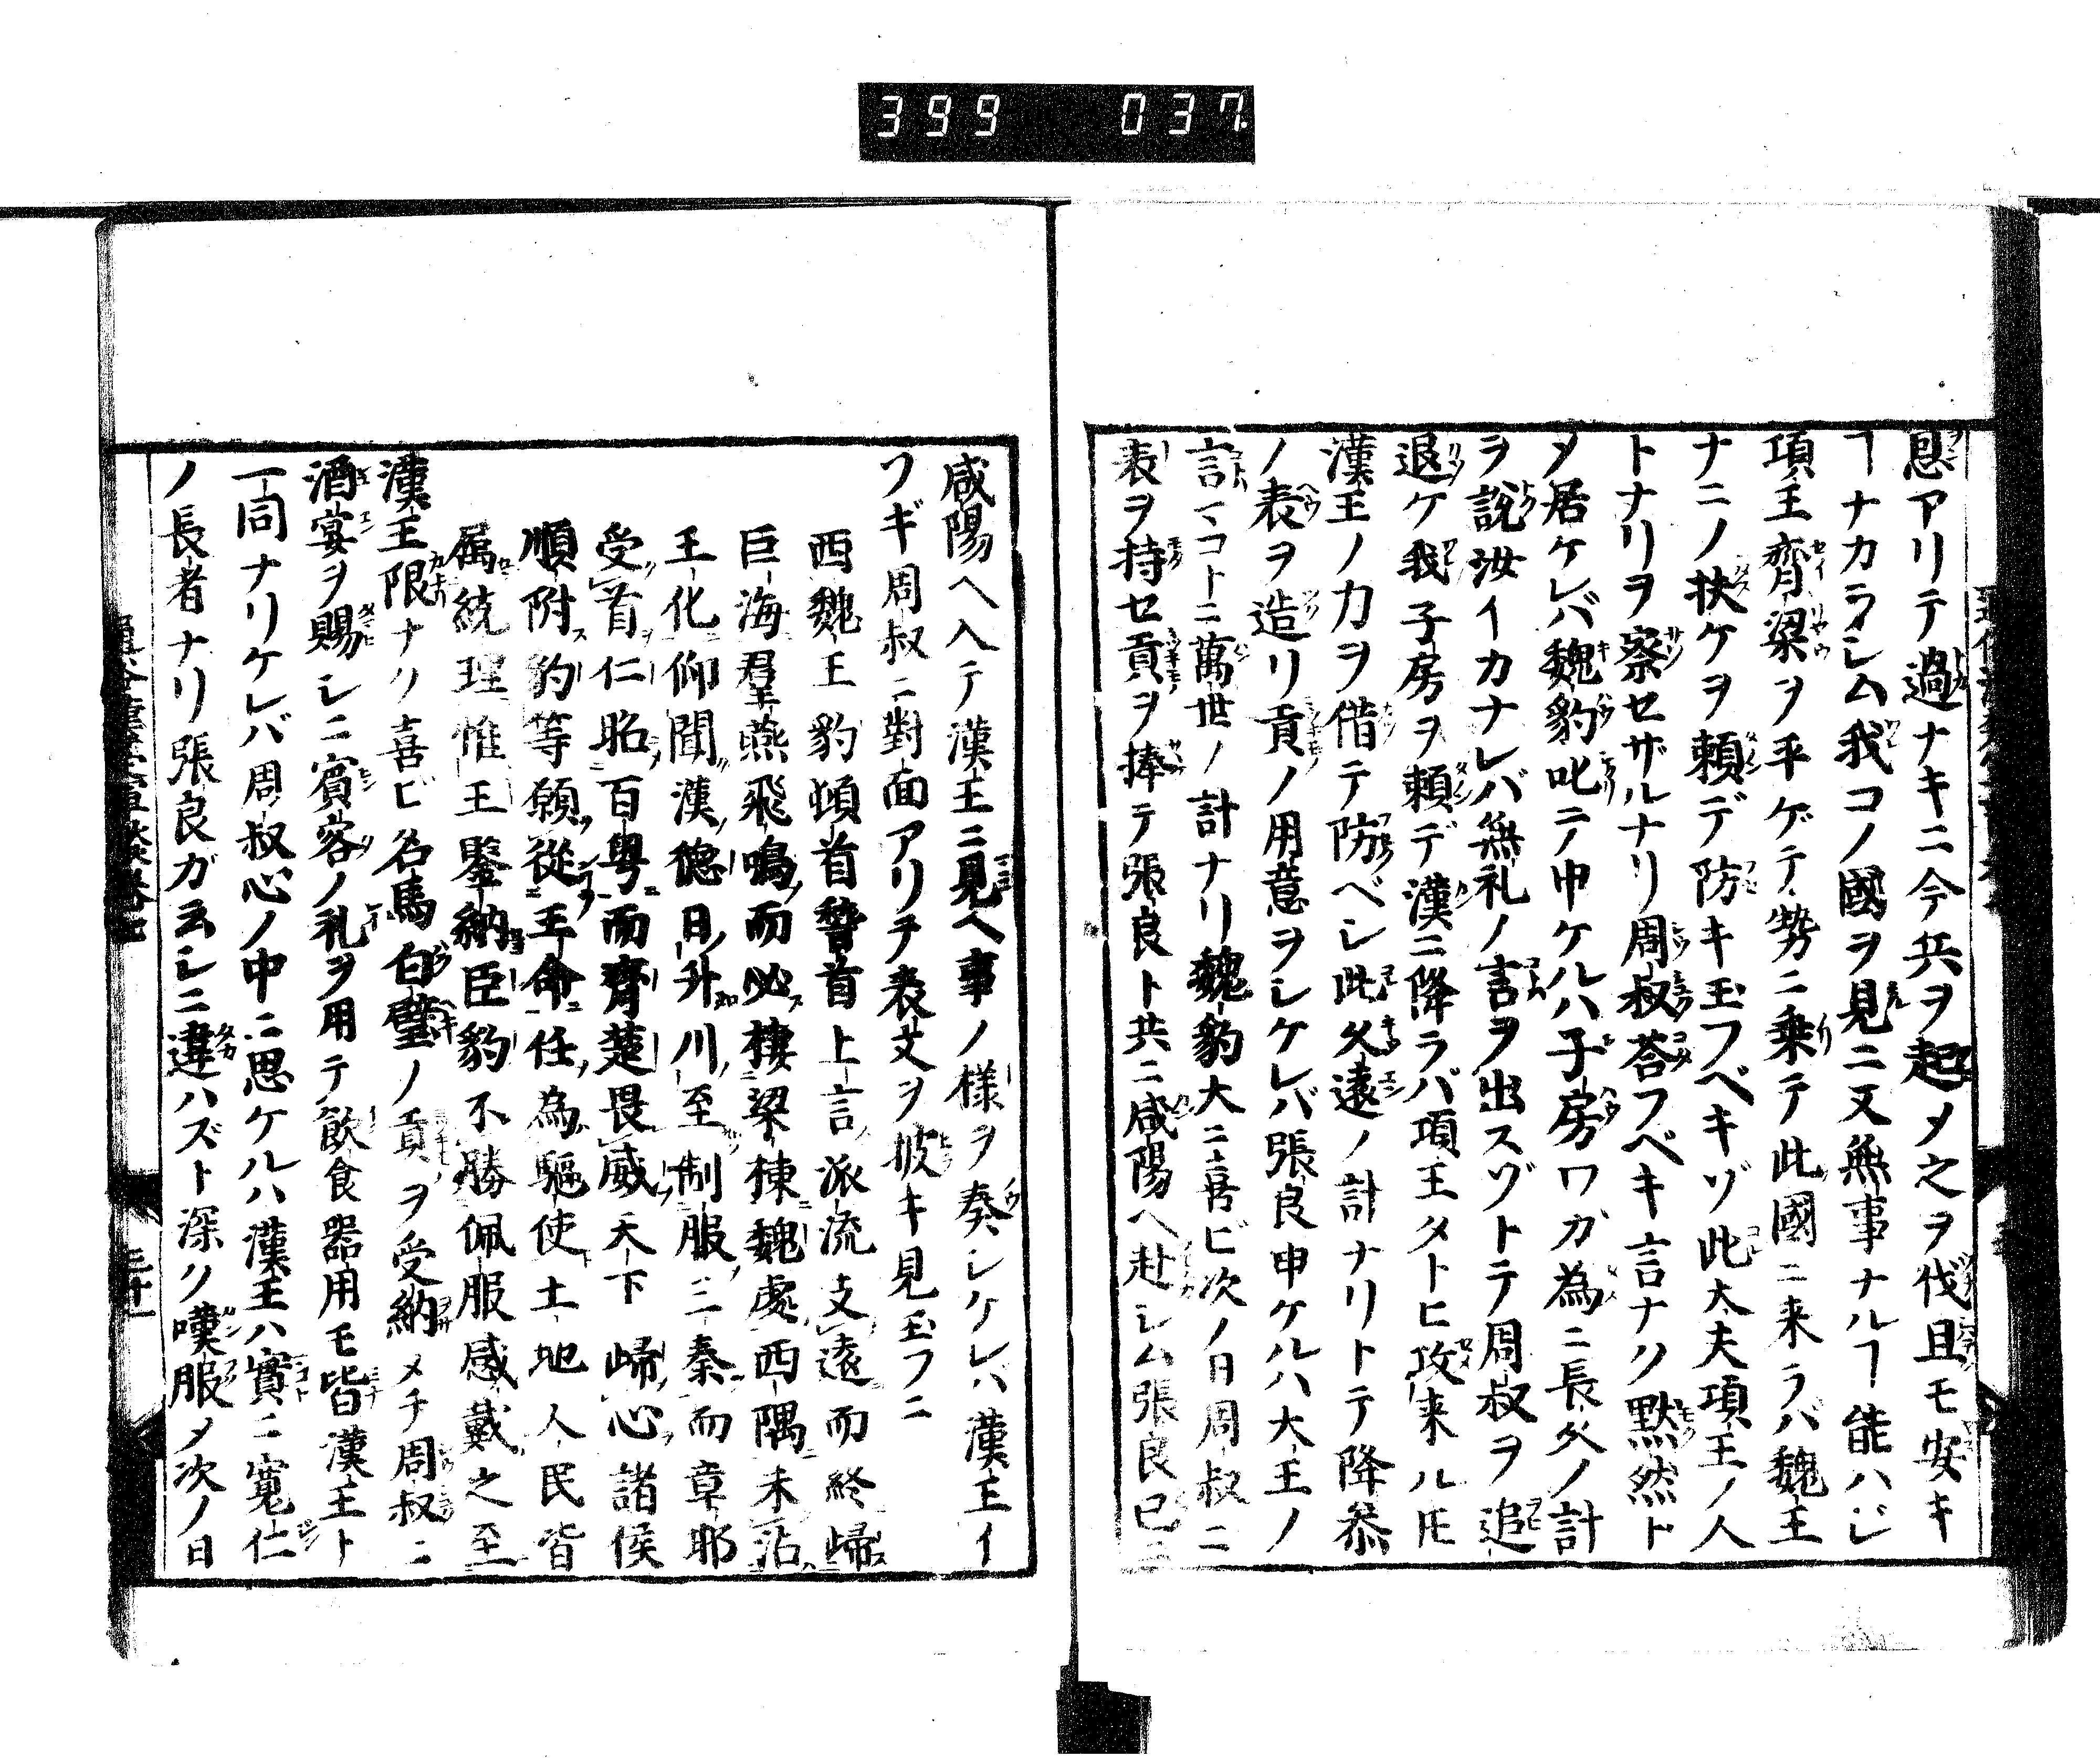 399 037
恩アリテ過ナキニ今兵ヲ起メ之ヲ伐且モ安キ
ヿナカラシム我コノ國ヲ見ニ又無事ナルヿ能ハジ
項王齊梁ヲ平ゲテ勢ニ乗テ此國ニ来ラバ魏王
ナニノ扶ケヲ頼デ防キ玉フベキゾ此大夫項王ノ人
トナリヲ察セザルナリ周叔荅フベキ言ナク黙然ト
メ居ケレバ魏豹叱テ申ケルハ子房ワガ為ニ長久ノ計
ヲ說汝イカナレバ無礼ノ言ヲ出スゾトテ周叔ヲ追
退ケ我子房ヲ頼デ漢ニ降ラバ項王タトヒ攻来ル𪜈
漢王ノ力ヲ借テ防ベシ此久遠ノ計ナリトテ降参
ノ表ヲ造リ貢ノ用意ヲシケレバ張良申ケルハ大王ノ
言マコトニ萬世ノ計ナリ魏豹大ニ喜ビ次ノ日周叔ニ
表ヲ持セ貢ヲ捧テ張良ト共ニ咸陽ヘ赴シム張良已ニ
咸陽ヘ入テ漢王ニ見ヘ事ノ様ヲ奏シケレハ漢王イ
フギ周叔ニ對面アリテ表文ヲ披キ見玉フニ
西魏王豹頓首誓首上言派流支遠而終歸
巨海羣燕飛鳴而必棲梁棟魏處西隅未沾
王化仰聞漢德日升川至制服三秦而章邯
受首仁昭百粤而齊楚畏威天下歸心諸侯
順附豹等願從王命任為驅使土地人民皆
属統理惟王鑒納臣豹不勝佩服感戴之至
漢王限ナク喜ビ名馬白璧ノ貢ヲ受納メテ周叔ニ
酒宴ヲ賜シニ賓客ノ礼ヲ用テ飲食器用モ皆漢王ト
一同ナリケレバ周叔心ノ中ニ思ケルハ漢王ハ實ニ寬仁
ノ長者ナリ張良ガ云シニ違ハズト深ク嘆服メ次ノ日
三十一